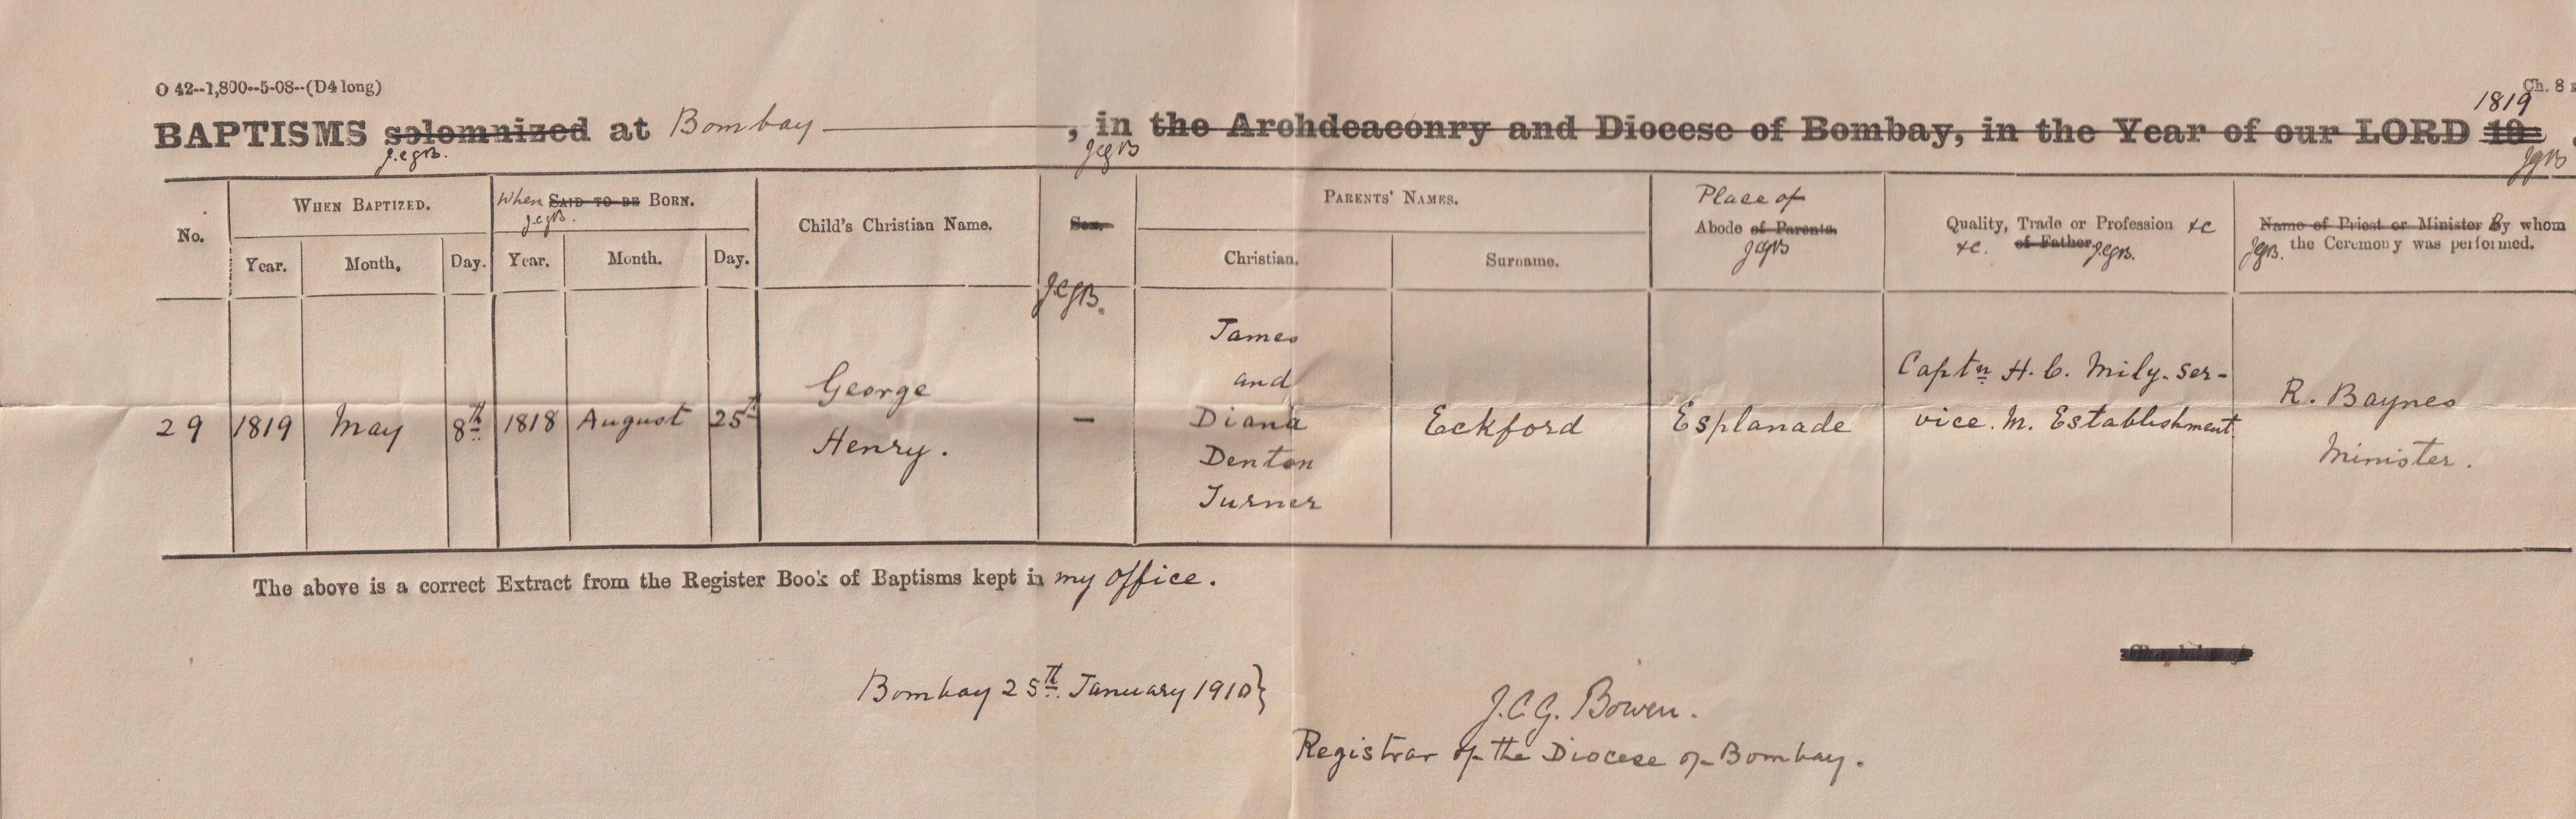 O 42--1,800--5-08--(D4 long)
Ch. 8
BAPTISMS solemnized at Bombay, in the Archdeaconry and Diocese of Bombay, in the Year of our LORD 19 1819
J.C.G.B. JCGB JGB
No.
WHEN BAPTIZED.
Year. Month. Day.
When SAID TO BE BORN.
J.C.G.B.
Year. Month. Day.
Child's Christian Name.
Sex.
J.C.G.B.
PARENTS' NAMES.
Christian. Surname.
Place of
Abode of Parents.
JCGB
Quality, Trade or Profession &c
&c. of Father. J.C.G.B.
Name of Priest or Minister By whom
JCGB. the Ceremony was performed.
29 1819 May 8th 1818 August 25th
George
Henry.
—
James
and
Diana
Denton
Turner
Eckford
Esplanade
Captn H. C. Mily. Ser-
vice. M. Establishment.
R. Baynes
Minister.
The above is a correct Extract from the Register Book of Baptisms kept in my office.
Bombay 25th. January 1910}
J.C.G. Bowen.
Registrar of the Diocese of Bombay.